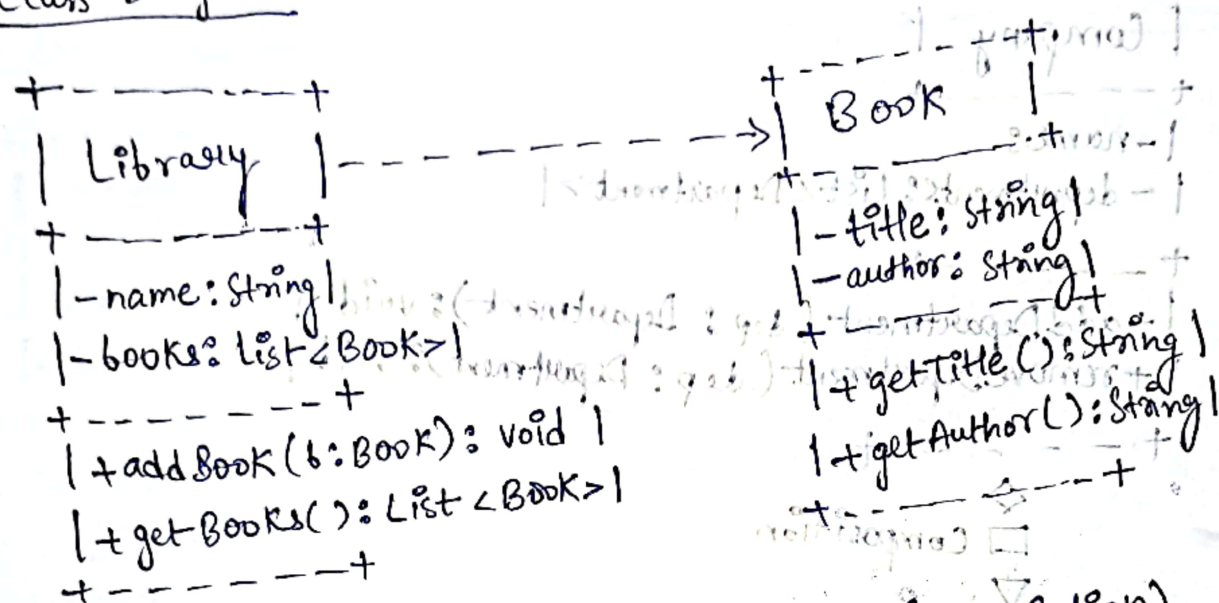 Class
Library
-name: String
-books: List<Book>
+addBook(b:Book): void
+getBooks(): List<Book>
Book
-title: String
-author: String
+getTitle(): String
+getAuthor(): String